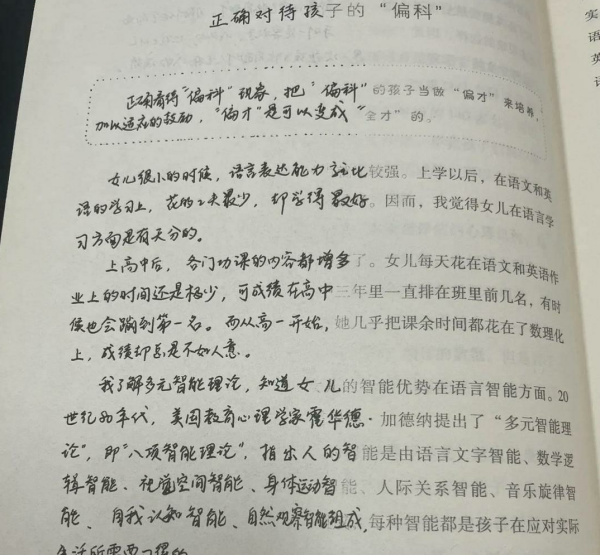 正确对待孩子的“偏科”
正确看待“偏科”现象，把“偏科”的孩子当做“偏才”来培养，
加以适应的鼓励，“偏才”是可以变成“全才”的。
女儿很小的时候，语言表达能力就比较强。上学以后，在语文和英
语的学习上，花的工夫最少，却学得最好。因而，我觉得女儿在语言学
习方面是有天分的。
上高中后，各门功课的内容都增多了。女儿每天花在语文和英语作
业上的时间还是极少，可成绩在高中三年里一直排在班里前几名，有时
候也会蹦到第一名。而从高一开始，她几乎把课余时间都花在了数理化
上，成绩却总是不如人意。
我了解多元智能理论，知道女儿的智能优势在语言智能方面。20
世纪80年代，美国教育心理学家霍华德·加德纳提出了“多元智能理
论”，即“八项智能理论”，指出人的智能是由语言文字智能、数学逻
辑智能、视觉空间智能、身体运动智能、人际关系智能、音乐旋律智
能、自我认知智能、自然观察智能组成，每种智能都是孩子在应对实际
生活所需要
实
语
英